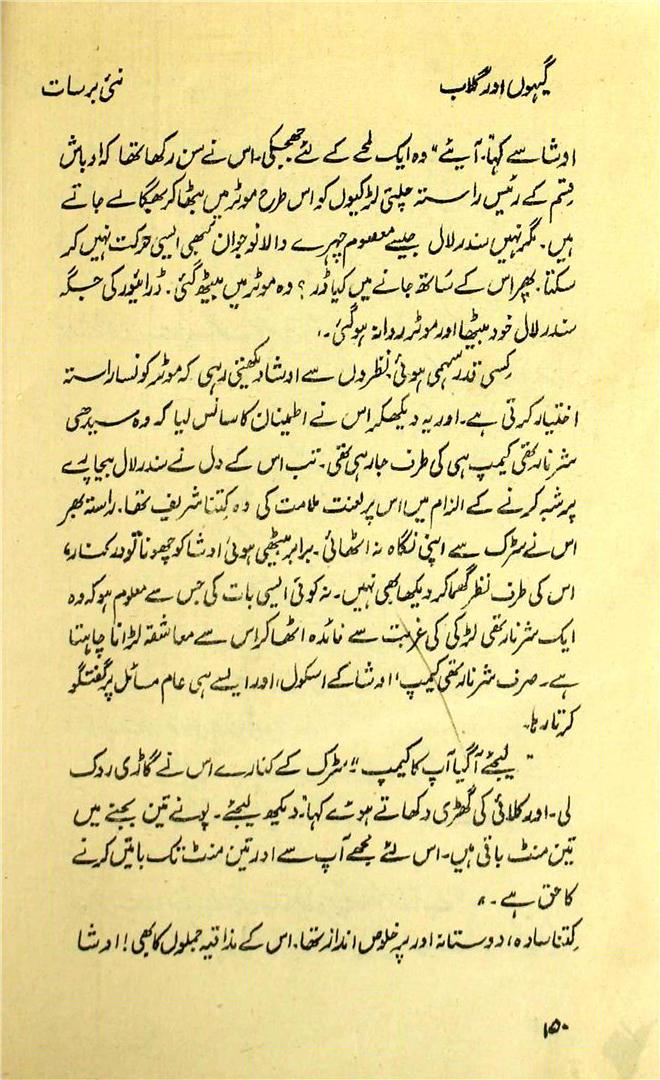 گیہوں اور گلاب
نئی برسات
اوشا سے کہا "آیئے" وہ ایک لمحے کے لئے جھجکی۔ اس نے سن رکھا تھا کہ اوباش
قسم کے رئیس راستہ چلتی لڑکیوں کو اس طرح موٹر میں بٹھا کر بھگا لے جاتے
ہیں۔ مگر نہیں سندر لال جیسے معصوم چہرے والا نوجوان کبھی ایسی حرکت نہیں کر
سکتا۔ پھر اس کے ساتھ جانے میں کیا ڈر؟ وہ موٹر میں بیٹھ گئی۔ ڈرائیور کی جگہ
سندر لال خود بیٹھا اور موٹر روانہ ہو گئی۔
کسی قدر سہمی ہوئی نظروں سے اوشا دیکھتی رہی کہ موٹر کونسا راستہ
اختیار کرتی ہے۔ اور یہ دیکھکر اس نے اطمینان کا سانس لیا کہ وہ سیدھی
شرنارتھی کیمپ ہی کی طرف جا رہی تھی۔ تب اس کے دل نے سندر لال بیچارے
پر شبہ کرنے کے الزام میں اس پر لعنت ملامت کی وہ کتنا شریف تھا۔ راستہ بھر
اس نے سڑک سے اپنی نگاہ نہ اٹھائی۔ برابر بیٹھی ہوئی اوشا کو چھونا تو درکنار،
اس کی طرف نظر گھما کر دیکھا بھی نہیں۔ نہ کوئی ایسی بات کی جس سے معلوم ہو کہ وہ
ایک شرنارتھی لڑکی کی غربت سے فائدہ اٹھا کر اس سے معاشقہ لڑانا چاہتا
ہے۔ صرف شرنارتھی کیمپ، اوشا کے اسکول، اور ایسے ہی عام مسائل پر گفتگو
کرتا رہا۔
"لیجئے آ گیا آپ کا کیمپ" سڑک کے کنارے اس نے گاڑی روک
لی۔ اور کلائی کی گھڑی دکھاتے ہوئے کہا "دیکھ لیجئے۔ پونے تین بجنے میں
تین منٹ باقی ہیں۔ اس لئے مجھے آپ سے اور تین منٹ تک باتیں کرنے
کا حق ہے۔"
کتنا سادہ، دوستانہ اور پرخلوص انداز تھا۔ اس کے مذاقیہ جملوں کا بھی! اوشا
۱۵۰